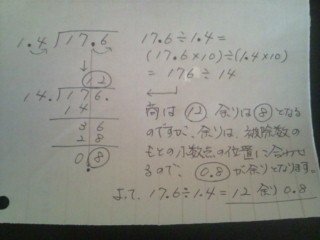 1.4)17.6
17.6÷1.4=
(17.6×10)÷(1.4×10)
= 176÷14
12
14.)176.
14
36
28
0.8
商は 12 余りは 8 となる
のですが、余りは、被除数の
もとの小数点の位置に合わせ
るので、0.8 が余りとなります。
よって、17.6÷1.4=12 余り 0.8